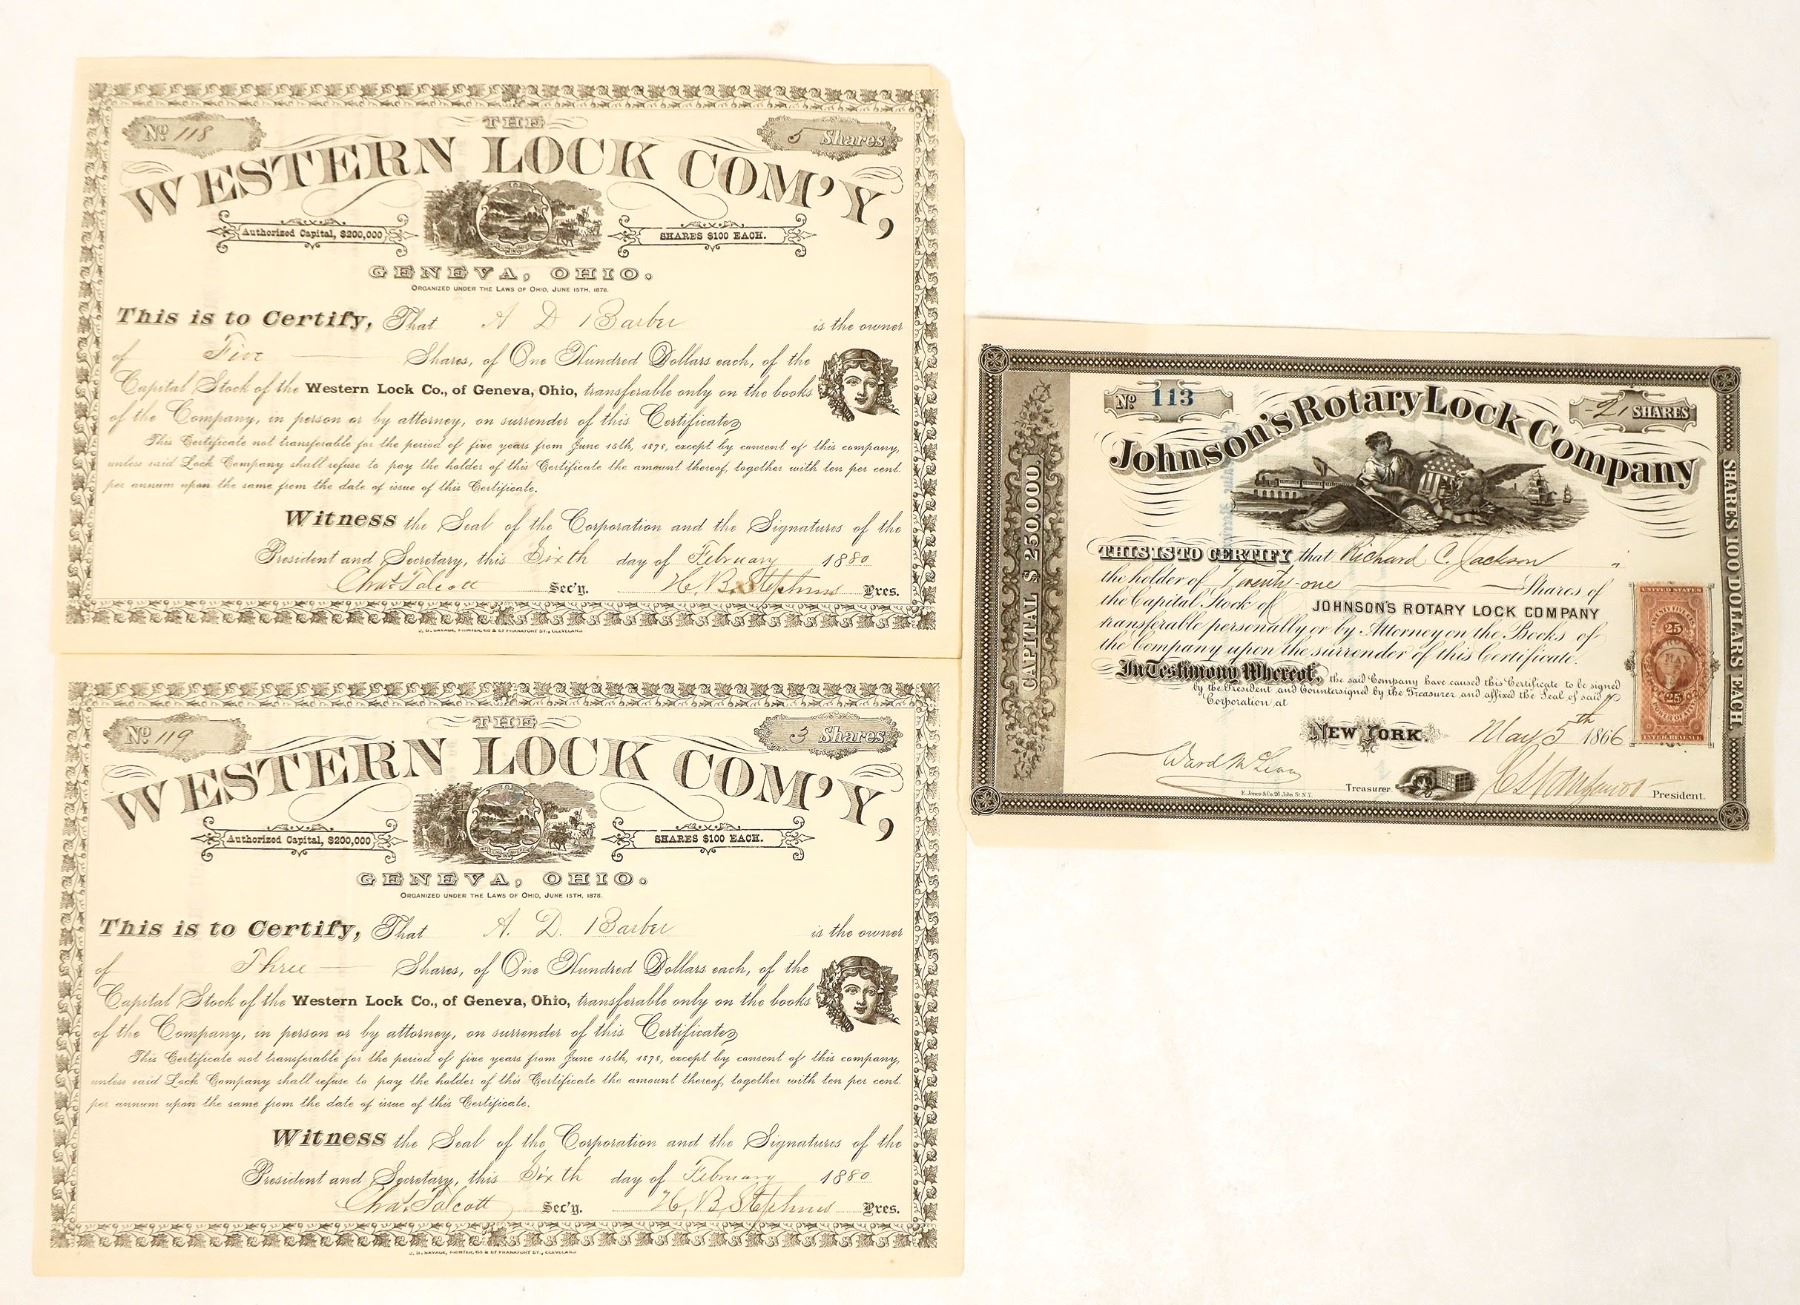 No 118
THE
5 Shares
WESTERN LOCK COM'Y,
Authorized Capital, $200,000
SHARES $100 EACH.
GENEVA, OHIO.
ORGANIZED UNDER THE LAWS OF OHIO, JUNE 15TH, 1878.
This is to Certify, That A D Barber is the owner
of Five Shares, of One Hundred Dollars each, of the
Capital Stock of the Western Lock Co., of Geneva, Ohio, transferable only on the books
of the Company, in person or by attorney, on surrender of this Certificate
This Certificate not transferable for the period of five years from June 15th, 1878, except by consent of this company,
unless said Lock Company shall refuse to pay the holder of this Certificate the amount thereof, together with ten per cent.
per annum upon the same from the date of issue of this Certificate.
Witness the Seal of the Corporation and the Signatures of the
President and Secretary, this Sixth day of February 1880
Chas Talcott Sec'y. H. B. Stephens Pres.
J. B. SAVAGE, PRINTER, 65 & 67 FRANKFORT ST., CLEVELAND
No 119
THE
3 Shares
WESTERN LOCK COM'Y,
Authorized Capital, $200,000
SHARES $100 EACH.
GENEVA, OHIO.
ORGANIZED UNDER THE LAWS OF OHIO, JUNE 15TH, 1878.
This is to Certify, That A. D. Barber is the owner
of Three Shares, of One Hundred Dollars each, of the
Capital Stock of the Western Lock Co., of Geneva, Ohio, transferable only on the books
of the Company, in person or by attorney, on surrender of this Certificate
This Certificate not transferable for the period of five years from June 15th, 1878, except by consent of this company,
unless said Lock Company shall refuse to pay the holder of this Certificate the amount thereof, together with ten per cent.
per annum upon the same from the date of issue of this Certificate.
Witness the Seal of the Corporation and the Signatures of the
President and Secretary, this Sixth day of February 1880
Chas. Talcott Sec'y. H. B. Stephens Pres.
J. B. SAVAGE, PRINTER, 65 & 67 FRANKFORT ST., CLEVELAND
No 113
-21 SHARES
Johnson's Rotary Lock Company
CAPITAL $ 250,000.
SHARES 10 DOLLARS EACH.
THIS IS TO CERTIFY that Richard C. Jackson
the holder of Twenty-one Shares of
the Capital Stock of JOHNSON'S ROTARY LOCK COMPANY
transferable personally or by Attorney on the Books of
the Company upon the surrender of this Certificate.
In Testimony Whereof, the said Company have caused this Certificate to be signed
by the President and Countersigned by the Treasurer and affixed the Seal of said
Corporation at
NEW YORK. May 5th 1866
Ward McLean Treasurer President.
E. Jones & Co. 26 John St. N.Y.
UNITED STATES
25 25
MAY
25 25
INTER. REVENUE